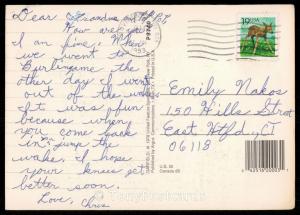 Dear Grandma and
How are you?
I am fine. When
we went to
Burlingame the
other day I went
out of the wake.
It was fun
because when
you come back
in you jump the
wake. I hope
your knees get
better soon.
Love, Chris
19 USA
Emily Nakos
150 Hills Street
East Htfd., CT
06118
TonyPostcards